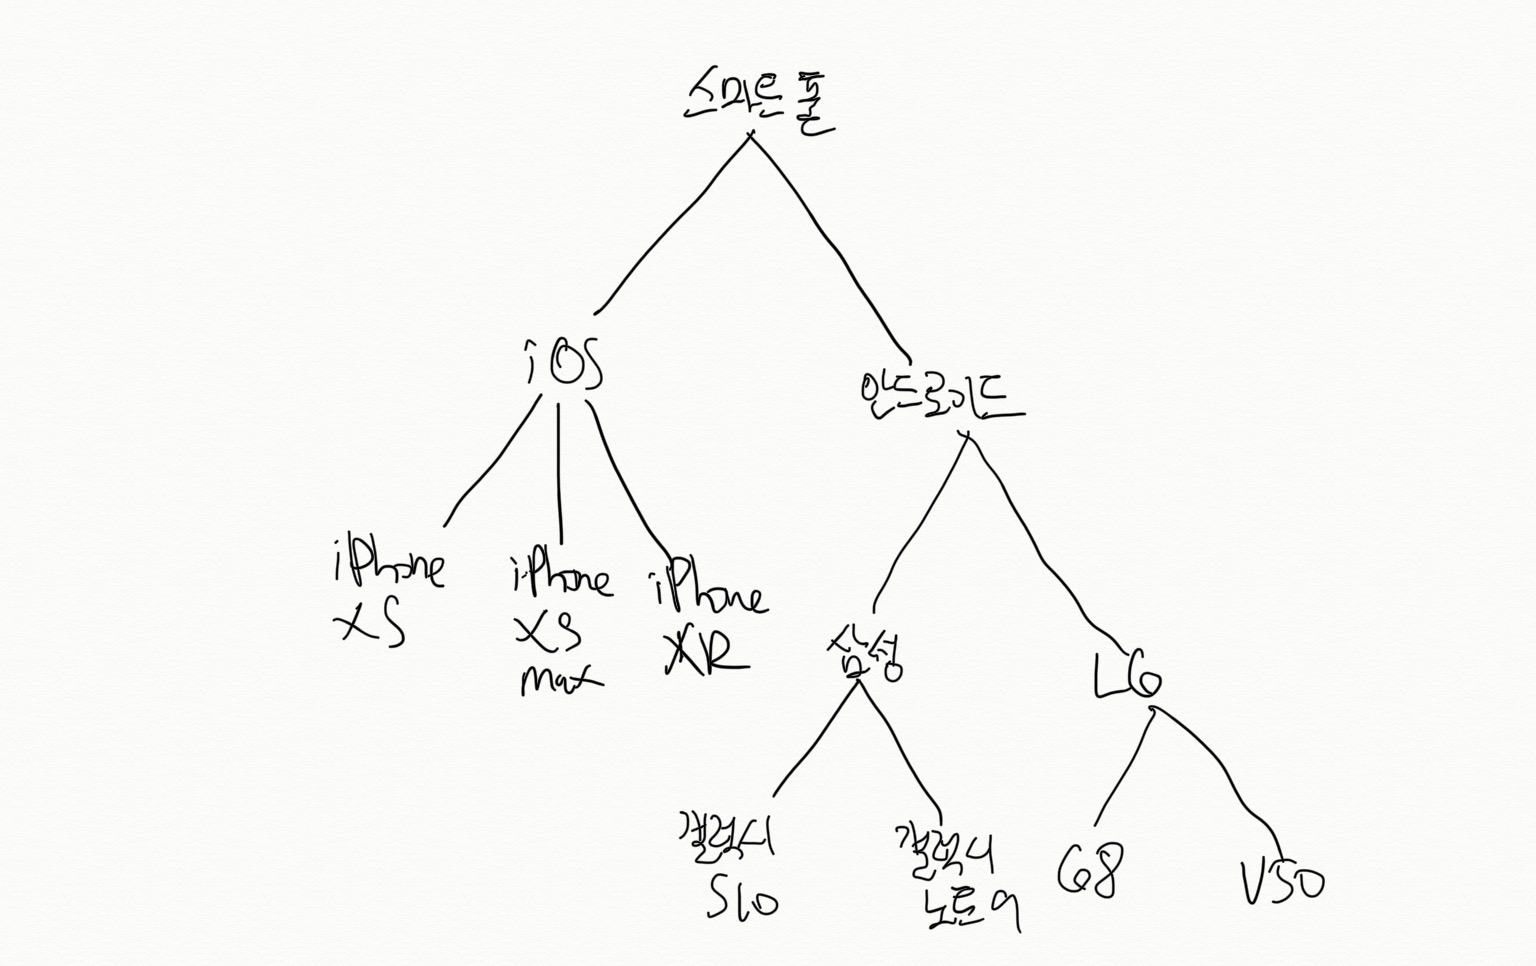 스마트폰
iOS
안드로이드
iPhone
XS
iPhone
XS
max
iPhone
XR
삼성
LG
갤럭시
S10
갤럭시
노트9
G8
V50